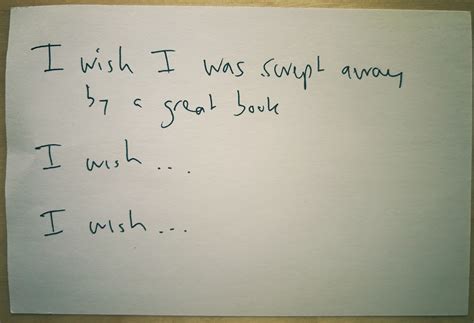 I wish I was swept away
by a great book
I wish...
I wish...